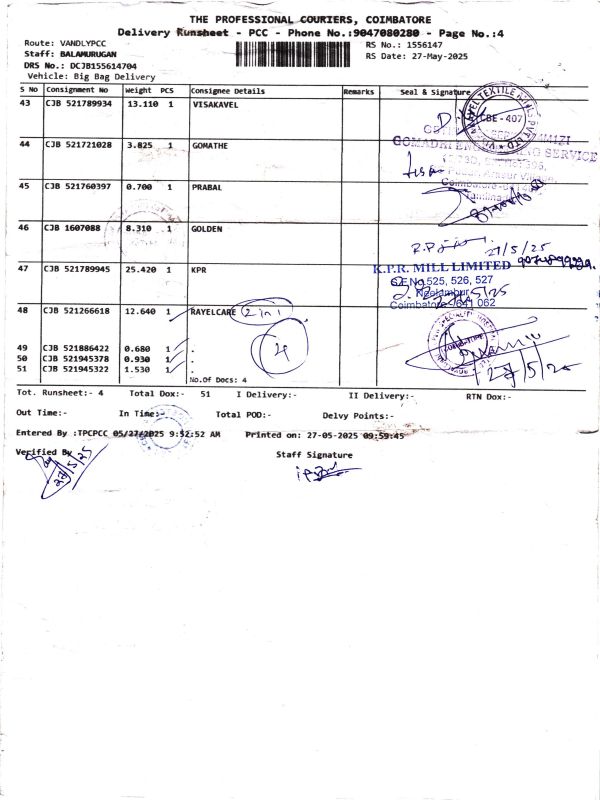 THE PROFESSIONAL COURIERS, COIMBATORE
Delivery Runsheet - PCC - Phone No.:9047080280 - Page No.:4
Route: VANDLYPCC
RS No.: 1556147
Staff: BALAMURUGAN
RS Date: 27-May-2025
DRS No.: DCJB155614704
Vehicle: Big Bag Delivery
S No Consignment No Weight PCS Consignee Details Remarks Seal & Signature
43 CJB 521789934 13.110 1 VISAKAVEL
CBE - 407
44 CJB 521721028 3.825 1 GOMATHE
45 CJB 521760397 0.700 1 PRABAL
46 CJB 1607088 8.310 1 GOLDEN
27/5/25
47 CJB 521789945 25.420 1 KPR
K.P.R. MILL LIMITED
S.F.No.525, 526, 527
Neelambur
Coimbatore - 641 062
48 CJB 521266618 12.640 1 RAYELCARE 2 in 1
49 CJB 521886422 0.680 1 .
50 CJB 521945378 0.930 1 .
51 CJB 521945322 1.530 1 .
4
27/5/25
No.Of Docs: 4
Tot. Runsheet:- 4 Total Dox:- 51 I Delivery:- II Delivery:- RTN Dox:-
Out Time:- In Time:- Total POD:- Delvy Points:-
Entered By :TPCPCC 05/27/2025 9:52:52 AM Printed on: 27-05-2025 09:59:45
Verified By Staff Signature
27/5/25